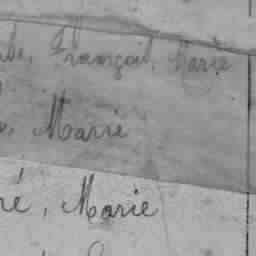 François, Marie
, Marie
ré, Marie